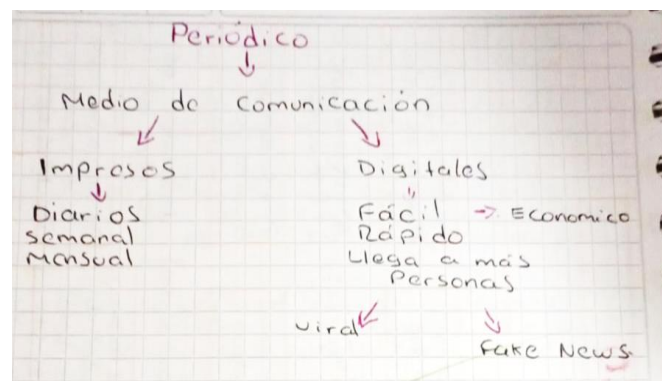 Periódico
Medio de comunicación
Impresos
Digitales
Diarios
semanal
Mensual
Fácil → Economico
Rápido
Llega a más
Personas
viral
Fake News